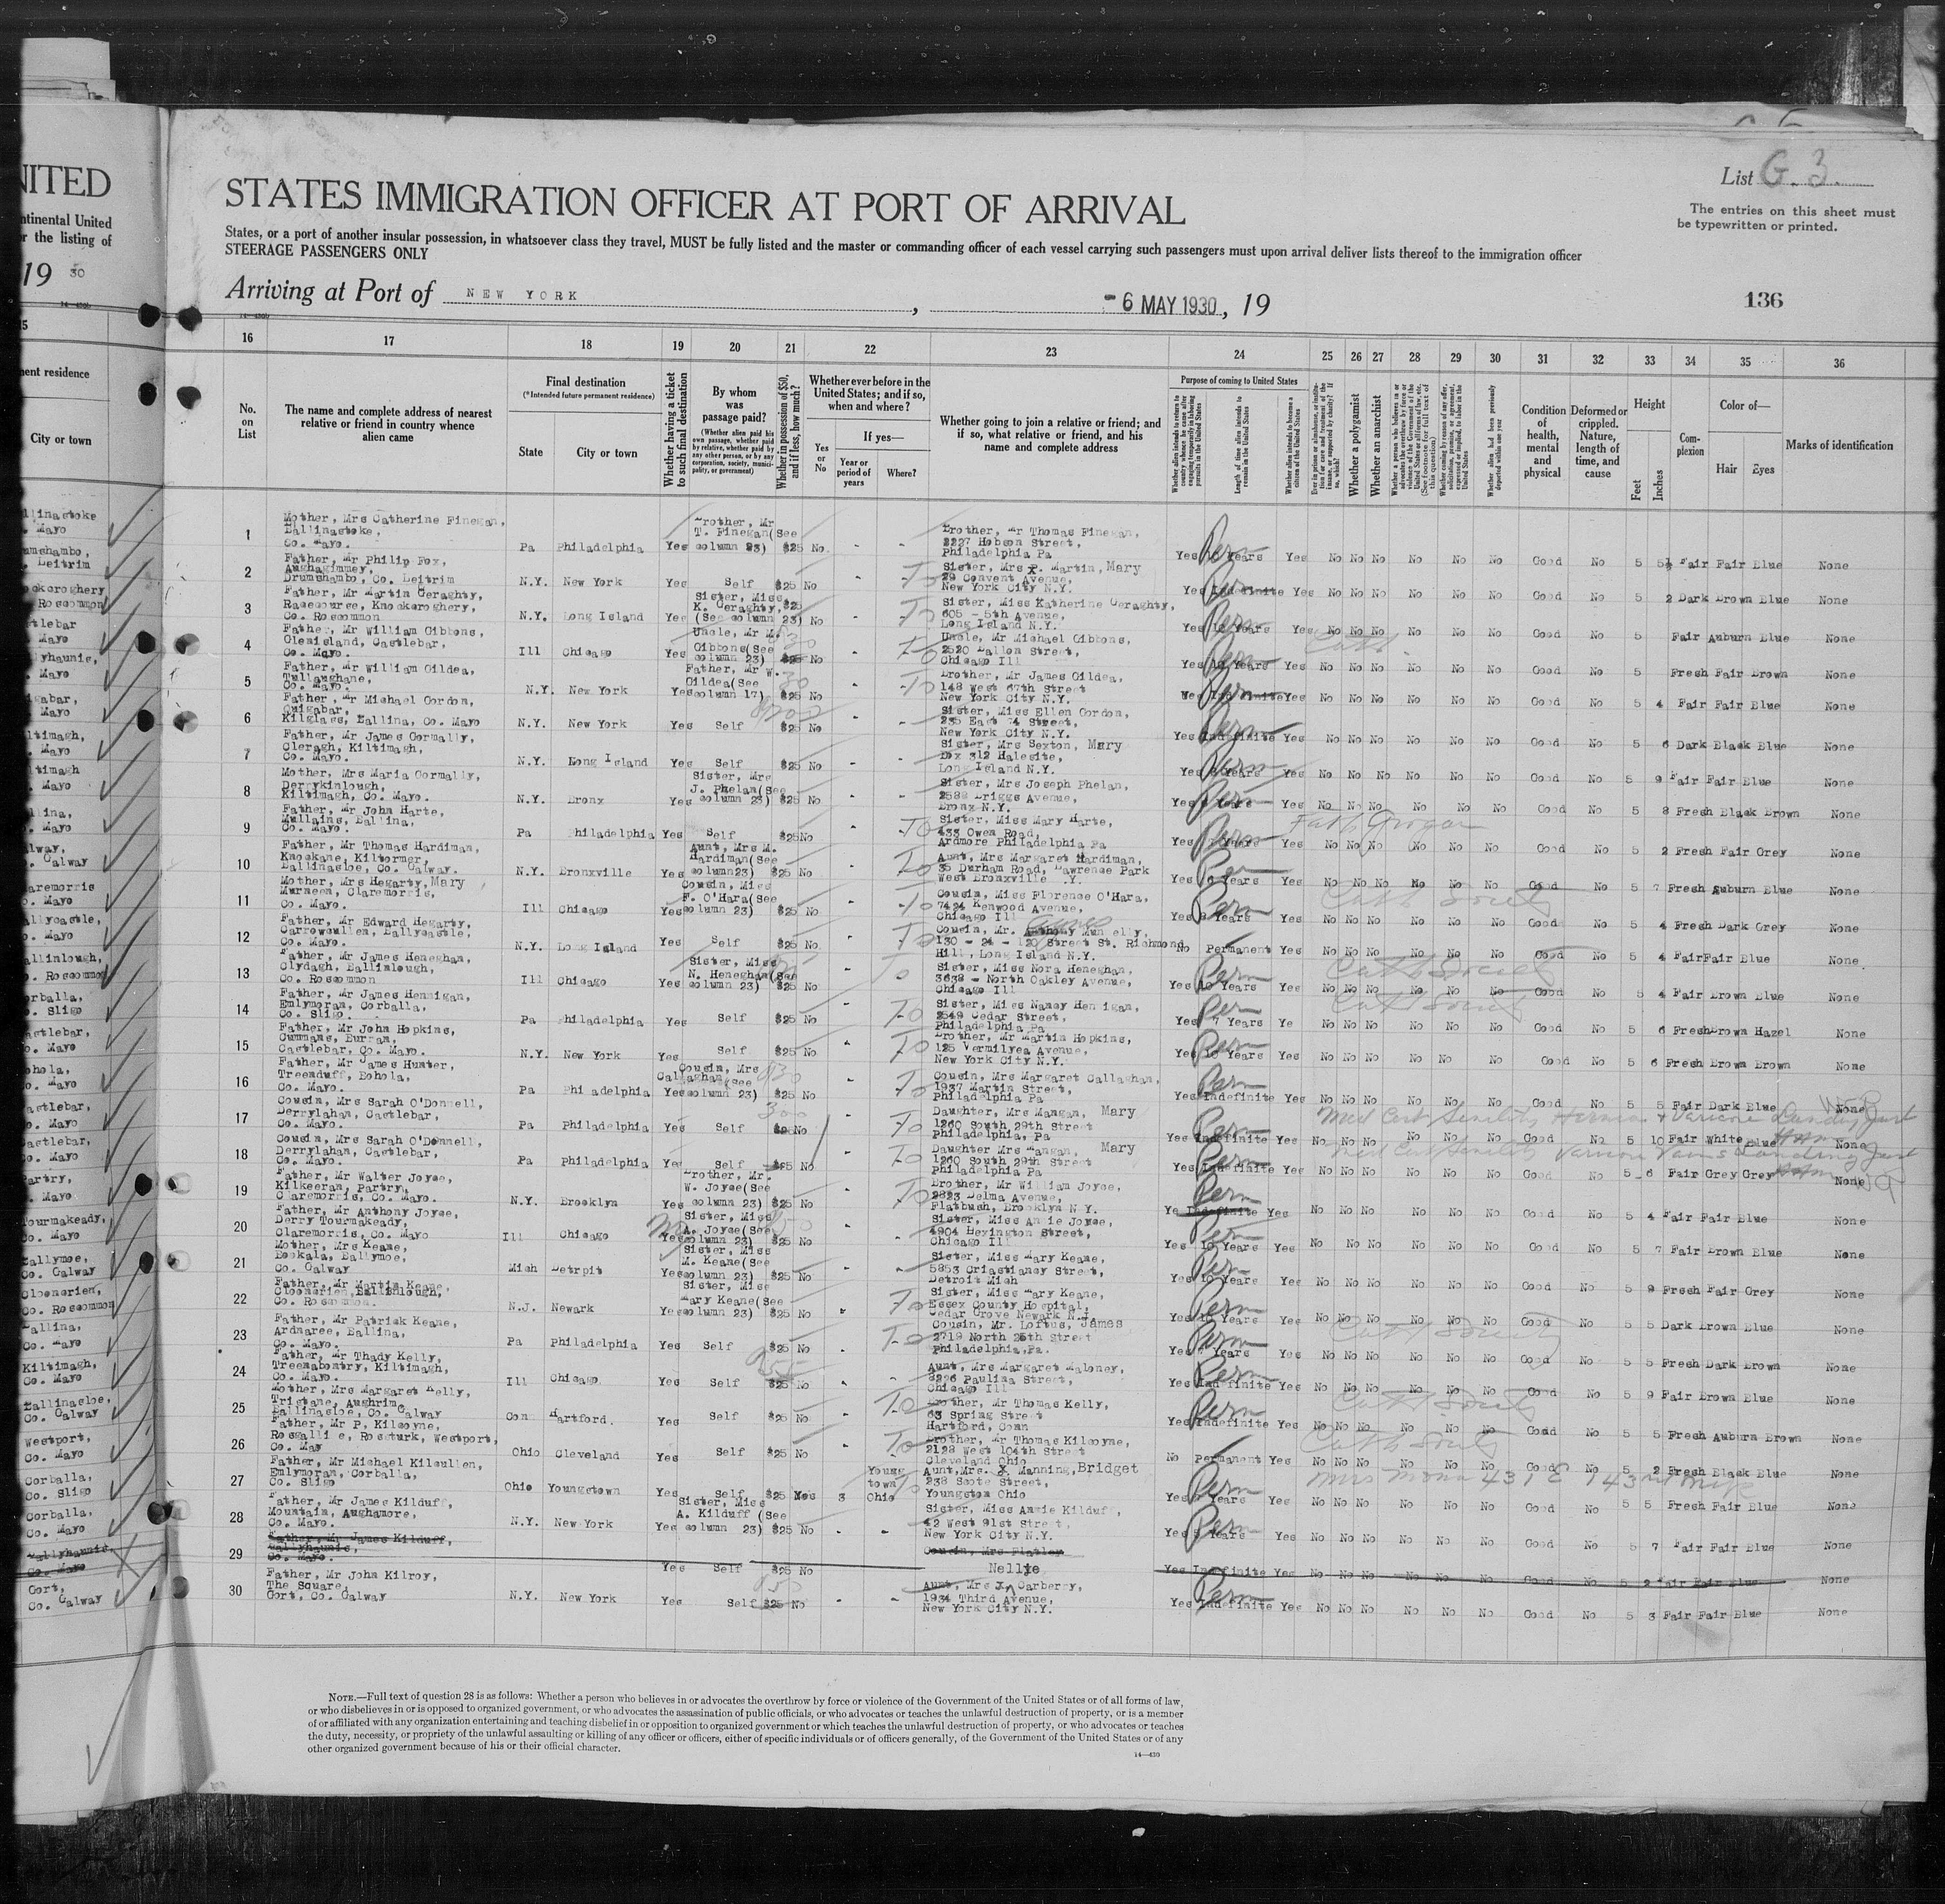 NITED
ntinental United
r the listing of
19 30
List G. 3.
The entries on this sheet must
be typewritten or printed.
STATES IMMIGRATION OFFICER AT PORT OF ARRIVAL
States, or a port of another insular possession, in whatsoever class they travel, MUST be fully listed and the master or commanding officer of each vessel carrying such passengers must upon arrival deliver lists thereof to the immigration officer
STEERAGE PASSENGERS ONLY
Arriving at Port of NEW YORK, -6 MAY 1930, 19
136
16 17 18 19 20 21 22 23 24 25 26 27 28 29 30 31 32 33 34 35 36
No. on List
The name and complete address of nearest relative or friend in country whence alien came
Final destination
(*Intended future permanent residence)
State
City or town
Whether having a ticket to such final destination
By whom was passage paid?
(Whether alien paid his own passage, whether paid by relative, whether paid by any other person, or by any corporation, society, municipality, or government)
Whether in possession of $50, and if less, how much?
Whether ever before in the United States; and if so, when and where?
Yes or No
If yes—
Year or period of years
Where?
Whether going to join a relative or friend; and if so, what relative or friend, and his name and complete address
Purpose of coming to United States
Length of time alien intends to remain in the United States
Whether a polygamist
Whether an anarchist
Condition of health, mental and physical
Deformed or crippled. Nature, length of time, and cause
Height
Feet
Inches
Complexion
Color of—
Hair
Eyes
Marks of identification
1 Mother, Mrs Catherine Finegan, Ballinastoke, Co. Mayo. Pa Philadelphia Yes Brother, Mr T. Finegan(See column 23) $25 No - - Brother, Mr Thomas Finegan, 2227 Hobson Street, Philadelphia Pa Yes Perm 10 Years Yes No No No No No No Good No 5 5½ Fair Fair Blue None
2 Father, Mr Philip Fox, Aughagimmey, Drumshambo, Co. Leitrim N.Y. New York Yes Self $25 No Sister, Mrs P. Martin, Mary 29 Convent Avenue, New York City N.Y. Yes Perm Indefinite Yes No No No No No No Good No 5 2 Dark Brown Blue None
3 Father, Mr Martin Geraghty, Racecourse, Knockcroghery, Co. Roscommon N.Y. Long Island Yes Sister, Miss K. Geraghty, (See column 23) $25 No Sister, Miss Katherine Geraghty, 605 - 5th Avenue, Long Island N.Y. Yes Perm Years Yes No No No No No No Good No 5 Fair Auburn Blue None
4 Father, Mr William Gibbons, Glenisland, Castlebar, Co. Mayo. Ill Chicago Yes Uncle, Mr M. Gibbons(See column 23) $25 No Uncle, Mr Michael Gibbons, 2520 Ballon Street, Chicago Ill Yes Perm 10 Years Yes No No No No No No Good No 5 Fresh Fair Brown None
5 Father, Mr William Gildea, Tullaughane, Co. Mayo. N.Y. New York Yes Father, Mr W. Gildea(See column 17) $25 No Brother, Mr James Gildea, 148 West 67th Street New York City N.Y. Yes Perm Indefinite Yes No No No No No No Good No 5 4 Fair Fair Blue None
6 Father, Mr Michael Gordon, Quigabar, Kilglass, Ballina, Co. Mayo N.Y. New York Yes Self $25 No - - Sister, Miss Ellen Gordon, 235 East 74 Street, New York City N.Y. Yes Perm Indefinite Yes No No No No No No Good No 5 6 Dark Black Blue None
7 Father, Mr James Gormally, Cleragh, Kiltimagh, Co. Mayo. N.Y. Long Island Yes Self $25 No - - Sister, Mrs Sexton, Mary Box 312 Halesite, Long Island N.Y. Yes Perm Years Yes No No No No No No Good No 5 9 Fair Fair Blue None
8 Mother, Mrs Maria Gormally, Derrykinlough, Kiltimagh, Co. Mayo. N.Y. Bronx Yes Sister, Mrs J. Phelan(See column 23) $25 No - - Sister, Mrs Joseph Phelan, 2582 Briggs Avenue, Bronx N.Y. Yes Perm Years Yes No No No No No No Good No 5 8 Fresh Black Brown None
9 Father, Mr John Harte, Mullains, Ballina, Co. Mayo. Pa Philadelphia Yes Self $25 No Sister, Miss Mary Harte, 433 Owen Road, Ardmore Philadelphia Pa Yes Perm Years Yes No No No No No No Good No 5 2 Fresh Fair Grey None
10 Father, Mr Thomas Hardiman, Knockane, Kiltormer, Ballinasloe, Co. Galway. N.Y. Bronxville Yes Aunt, Mrs M. Hardiman(See column23) $25 No Aunt, Mrs Margaret Hardiman, 35 Durham Road, Lawrence Park West Bronxville .Y. Yes Perm 6 Years Yes No No No No No No Good No 5 7 Fresh Auburn Blue None
11 Mother, Mrs Hegarty, Mary Murneen, Claremorris, Co. Mayo. Ill Chicago Yes Cousin, Miss F. O'Hara(See column 23) $25 No Cousin, Miss Florence O'Hara, 7424 Kenwood Avenue, Chicago Ill Yes Perm Years Yes No No No No No No Good No 5 4 Fresh Dark Grey None
12 Father, Mr Edward Hegarty, Carrowcullen, Ballycastle, Co. Mayo. N.Y. Long Island Yes Self $25 No Cousin, Mr. Anthony Munnelly, 130 - 24 - 120 Street St. Richmond Hill, Long Island N.Y. No Permanent Yes No No No No No No Good No 5 4 Fair Fair Blue None
13 Father, Mr James Heneghan, Clydagh, Ballinlough, Co. Roscommon Ill Chicago Yes Sister, Miss N. Heneghan(See column 23) $25 No Sister, Miss Nora Heneghan, 3638 - North Oakley Avenue, Chicago Ill Yes Perm 10 Years Yes No No No No No No Good No 5 4 Fair Brown Blue None
14 Father, Mr James Hennigan, Emlymoran, Corballa, Co. Sligo. Pa Philadelphia Yes Self $25 No Sister, Miss Nancy Hen igan, 2549 Cedar Street, Philadelphia Pa Yes Perm 7 Years Ye No No No No No No Good No 5 6 Fresh Brown Hazel None
15 Father, Mr John Hopkins, Cummans, Burran, Castlebar, Co. Mayo. N.Y. New York Yes Self $25 No Brother, Mr Martin Hopkins, 125 Vermilyea Avenue, New York City N.Y. Yes Perm 10 Years Yes No No No No No No Good No 5 6 Fresh Brown Brown None
16 Father, Mr James Hunter, Treenduff, Bohola, Co. Mayo. Pa Philadelphia Yes Cousin, Mrs Callaghan (See column 23) $25 No Cousin, Mrs Margaret Callaghan, 1937 Martin Street, Philadelphia Pa Yes Perm Indefinite Yes No No No No No No Good No 5 5 Fair Dark Blue None
17 Cousin, Mrs Sarah O'Donnell, Derrylahan, Castlebar, Co. Mayo. Pa Philadelphia Yes Self $25 No Daughter, Mrs Mangan, Mary 1260 South 29th Street Philadelphia, Pa Yes Perm Indefinite Yes No No No No No No Good No 5 10 Fair White Blue None
18 Cousin, Mrs Sarah O'Donnell, Derrylahan, Castlebar, Co. Mayo. Pa Philadelphia Yes Self $25 No Daughter Mrs Mangan, Mary 1260 South 29th Street Philadelphia Pa Yes Perm Indefinite Yes No No No No No No Good No 5 6 Fair Grey Grey None
19 Father, Mr Walter Joyce, Kilkeeran, Partry, Claremorris, Co. Mayo. N.Y. Brooklyn Yes Brother, Mr. W. Joyce(See column 23) $25 No Brother, Mr William Joyce, 2823 Delma Avenue, Flatbush, Brooklyn N Y. Ye Perm Indefinite Yes No No No No No No Good No 5 4 Fair Fair Blue None
20 Father, Mr Anthony Joyce, Derry Tourmakeady, Claremorris, Co. Mayo Ill Chicago Yes Sister, Miss A. Joyce(See column 23) $25 No - Sister, Miss Annie Joyce, 4904 Hexington Street, Chicago Ill Yes Perm 10 Years Yes No No No No No No Good No 5 7 Fair Brown Blue None
21 Mother, Mrs Keane, Bookala, Ballymoe, Co. Galway Mich Detroit Yes Sister, Miss M. Keane(See column 23) $25 No - - Sister, Miss Mary Keane, 5853 Cristiancy Street, Detroit Mich Yes Perm 10 Years Yes No No No No No No Good No 5 9 Fresh Fair Grey None
22 Father, Mr Martin Keane, Clooncrien, Ballinlough, Co. Roscommon. N.J. Newark Yes Sister, Miss Mary Keane(See column 23) $25 No Sister, Miss Mary Keane, Essex County Hospital, Cedar Grove Newark N.J. Yes Perm 10 Years Yes No No No No No No Good No 5 5 Dark Brown Blue None
23 Father, Mr Patrick Keane, Ardnaree, Ballina, Co. Mayo. Pa Philadelphia Yes Self $25 No Cousin, Mr. Loftus, James 2719 North 25th Street Philadelphia, Pa. Yes Perm Years Yes No No No No No No Good No 5 5 Fresh Dark Brown None
24 Father, Mr Thady Kelly, Treenabontry, Kiltimagh, Co. Mayo. Ill Chicago Yes Self $25 No - - Aunt, Mrs Margaret Maloney, 8226 Paulina Street, Chicago Ill Yes Perm Indefinite Yes No No No No No No Good No 5 9 Fair Brown Blue None
25 Mother, Mrs Margaret Kelly, Tristane, Aughrim, Ballinasloe, Co. Galway Con Hartford. Yes Self $25 No Brother, Mr Thomas Kelly, 63 Spring Street Hartford, Conn Yes Perm Indefinite Yes No No No No No No Good No 5 5 Fresh Auburn Brown None
26 Father, Mr P, Kilcoyne, Rosgalli e, Rosturk, Westport, Co. May Ohio Cleveland Yes Self $25 No Brother, Mr Thomas Kilcoyne, 2128 West 104th Street Cleveland Ohio No Permanent Yes No No No No No No Good No 5 2 Fresh Black Blue None
27 Father, Mr Michael Kilcullen, Emlymoran, Corballa, Co. Sligo Ohio Youngstown Yes Self $25 Yes 3 Young town Ohio Aunt, Mrs. X Manning, Bridget 238 Scote Street, Youngston Ohio Yes Perm Years Yes No No No No No No Good No 5 5 Fresh Fair Blue None
28 Father, Mr James Kilduff, Mountain, Aughamore, Co. Mayo N.Y. New York Yes Sister, Miss A. Kilduff (See column 23) $25 No - - Sister, Miss Annie Kilduff, 42 West 91st Street, New York City N.Y. Yes Perm 5 Years Yes No No No No No No Good No 5 7 Fair Fair Blue None
29 Father, Mr James Kilduff, Ballyhaunis, Co. Mayo. Yes Self $25 No Cousin, Mrs Flatley Yes Indefinite Yes No No No No No No Good No 5 2 Fair Fair Blue None
30 Father, Mr John Kilroy, The Square, Gort, Co. Galway N.Y. New York Yes Self $25 No - - Nellie Aunt, Mrs X Carberry, 1934 Third Avenue, New York City N.Y. Yes Perm Indefinite Yes No No No No No No Good No 5 3 Fair Fair Blue None
NOTE.—Full text of question 28 is as follows: Whether a person who believes in or advocates the overthrow by force or violence of the Government of the United States or of all forms of law,
or who disbelieves in or is opposed to organized government, or who advocates the assassination of public officials, or who advocates or teaches the unlawful destruction of property, or is a member
of or affiliated with any organization entertaining and teaching disbelief in or opposition to organized government or which teaches the unlawful destruction of property, or who advocates or teaches
the duty, necessity, or propriety of the unlawful assaulting or killing of any officer or officers, either of specific individuals or of officers generally, of the Government of the United States or of any
other organized government because of his or their official character.
14—430